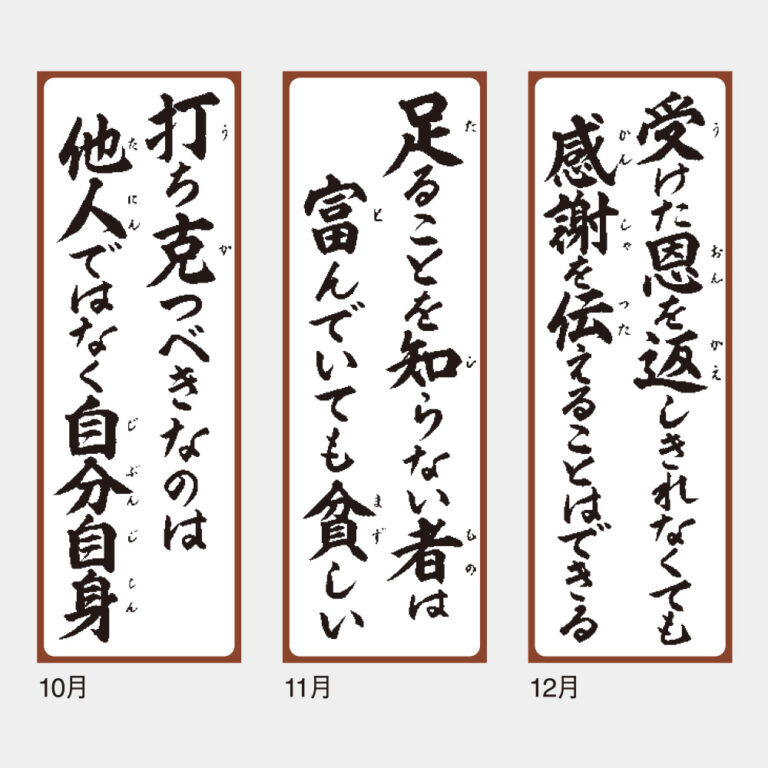 打ち克つべきなのは
他人ではなく自分自身
10月
足ることを知らない者は
富んでいても貧しい
11月
受けた恩を返しきれなくても
感謝を伝えることはできる
12月